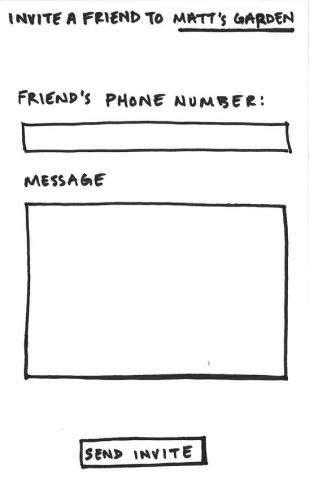 INVITE A FRIEND TO MATT'S GARDEN
FRIEND'S PHONE NUMBER:
MESSAGE
SEND INVITE